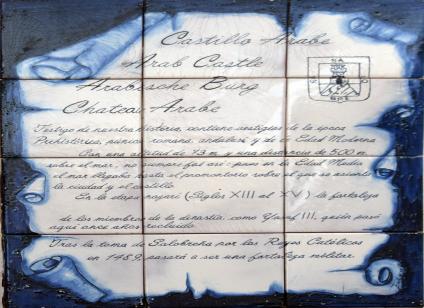 Castillo Arabe
Arab Castle
Arabische Burg
Chateau Arabe
SA
Testigo de nuestra historia, contiene vestigios de la época
Prehistórica, púnica, romana, andalusí y de la Edad Moderna
Con una altitud de m y una distancia de 500 m.
sobre el mar, en la Edad Media
el mar llegaba hasta el promontorio sobre el que se asienta
la ciudad y el castillo
En la etapa nazarí (Siglos XIII al XV) la fortaleza
de los miembros de la dinastía, como Yusuf III, quién pasó
aquí once años recluido
Tras la toma de Salobreña por los Reyes Católicos
en 1489, pasará a ser una fortaleza militar.